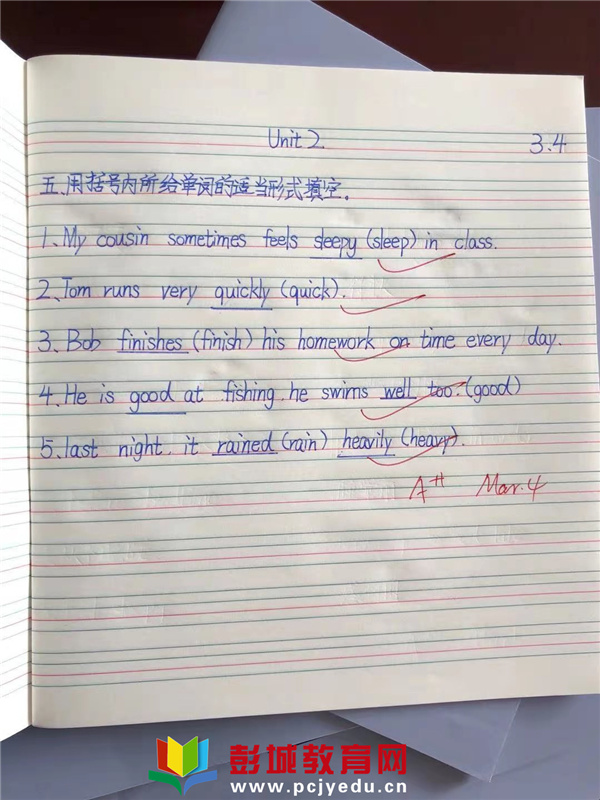 Unit 2. 3.4
五.用括号内所给单词的适当形式填空.
1、My cousin sometimes feels sleepy (sleep) in class.
2、Tom runs very quickly (quick).
3、Bob finishes (finish) his homework on time every day.
4、He is good at fishing. he swims well too. (good)
5、last night, it rained (rain) heavily (heavy).
A++ Mar.4
彭城教育网
www.pcjyedu.cn